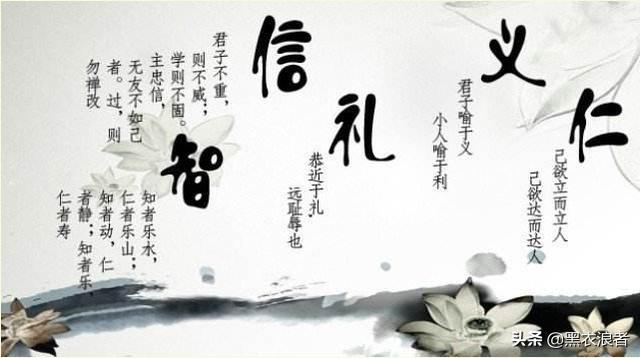 仁
己欲立而立人
己欲达而达人
义
君子喻于义
小人喻于利
礼
恭近于礼，
远耻辱也
信
君子不重，
则不威；
学则不固。
主忠信，
无友不如己
者。过，则
勿禅改
智
知者乐水，
仁者乐山；
知者动，仁
者静；知者乐，
仁者寿
头条 @黑衣浪者